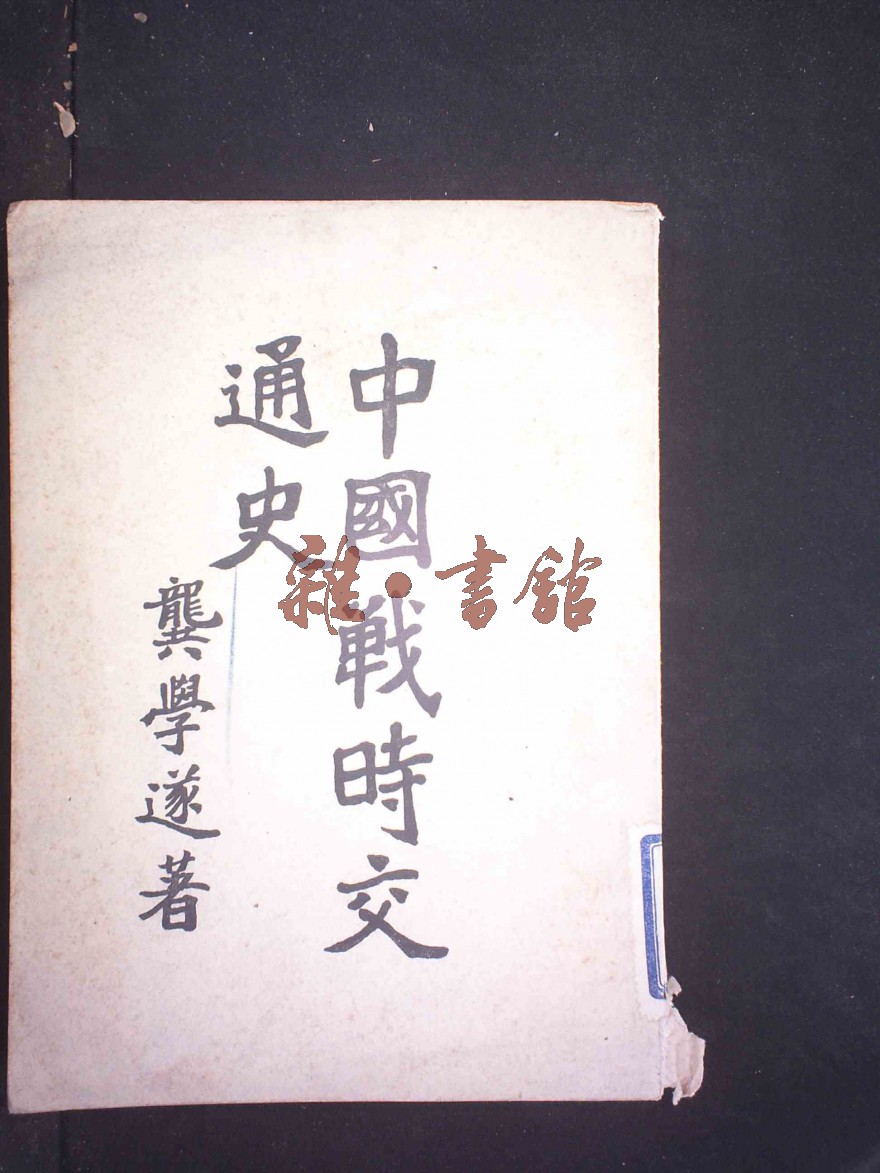 中國戰時交
通史
龔學遂著
雜·書館